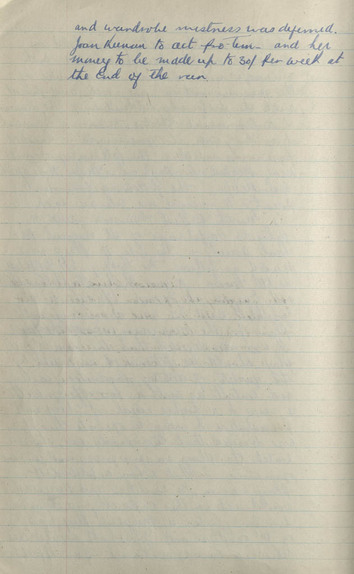 and wardrobe mistress was deferred.
Joan Keenan to act pro. tem. and her
money to be made up to 30/ per week at
the end of the run